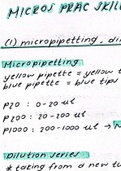 MICROS PRAC SKIL
(1) micropipetting, di
Micropipetting
yellow pipette = yellow t
blue pipette = blue tips
P20 : 0-20 ul
P200 : 20-200 ul
P1000 : 200-1000 ul →
Dilution series
* taking from a new tu